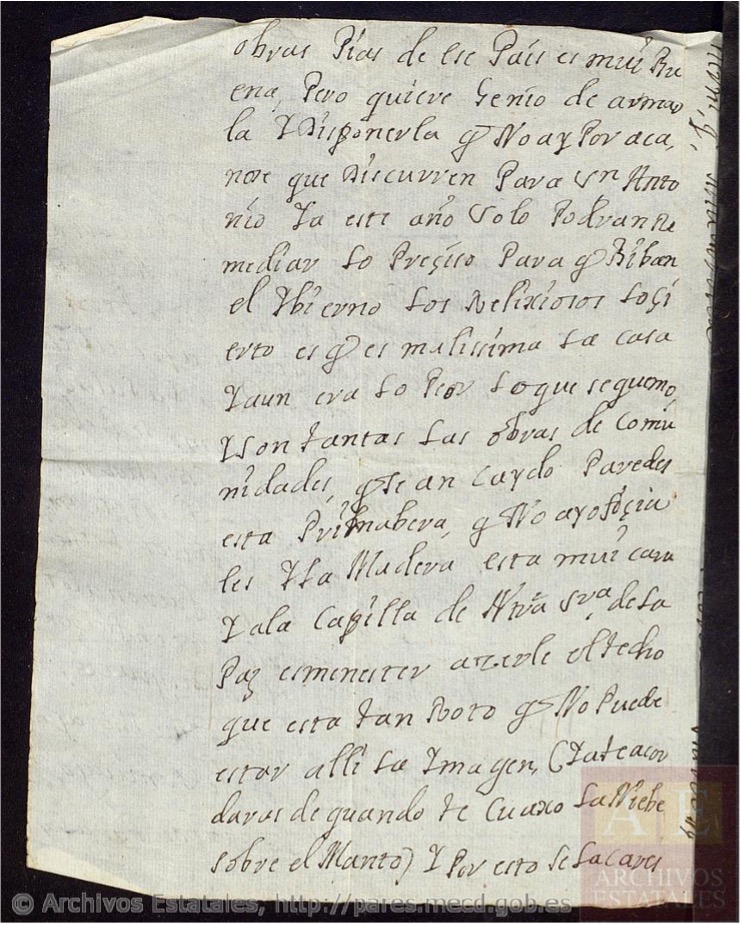 obras Pias de ese Pais es mui Bu
ena, Pero quiere Genio de armar
la Y Disponerla q No ay Por aca,
nose que Discurren Para un Anto
nio Ya este año solo Podran Re
mediar lo Preçiso Para q Biban
el Ybierno los Relixiosos loçi
erto es q es malissima la casa
Yaun era lo Peor loque sequemo,
Yson tantas las obras de Comu
nidades, q se an Caydo Paredes
esta Primabera, q No ay ofiçia
les Y la Madera esta mui cara
Y ala Capilla de Ntra Sra de la
Paz esmenester azerle el techo
que esta tan Roto q No Puede
estar alli la Ymagen, (Ya te acor
daras de quando se Cuaxo la Niebe
sobre el Manto) Y Por esto se
© Archivos Estatales, http://pares.mecd.gob.es
AE
ARCHIVOS
ESTATALES